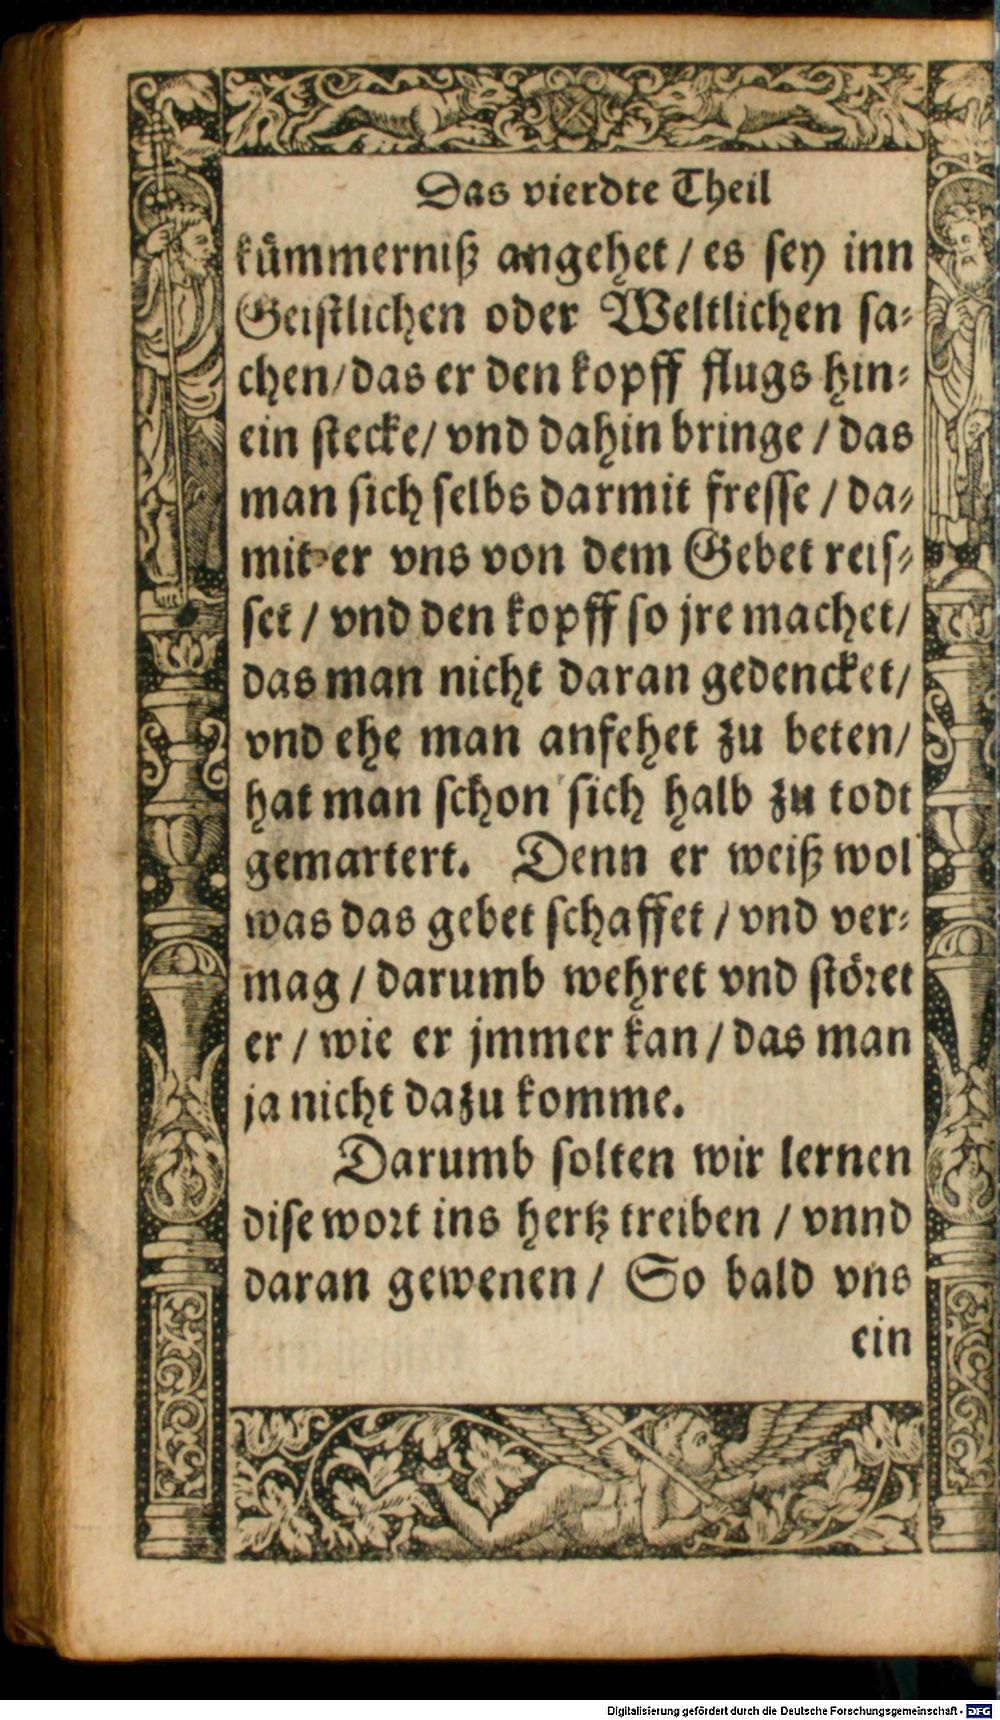 Das vierdte Theil
kümmerniß angehet / es sey inn
Geistlichen oder Weltlichen sa⸗
chen / das er den kopff flugs hin⸗
ein stecke / vnd dahin bringe / das
man sich selbs darmit fresse / da⸗
mit er vns von dem Gebet reis⸗
set / vnd den kopff so jre machet /
das man nicht daran gedencket /
vnd ehe man anfehet zu beten /
hat man schon sich halb zu todt
gemartert. Denn er weiß wol
was das gebet schaffet / vnd ver⸗
mag / darumb wehret vnd störet
er / wie er jmmer kan / das man
ja nicht dazu komme.
Darumb solten wir lernen
dise wort ins hertz treiben / vnnd
daran gewenen / So bald vns
ein
Digitalisierung gefördert durch die Deutsche Forschungsgemeinschaft - DFG